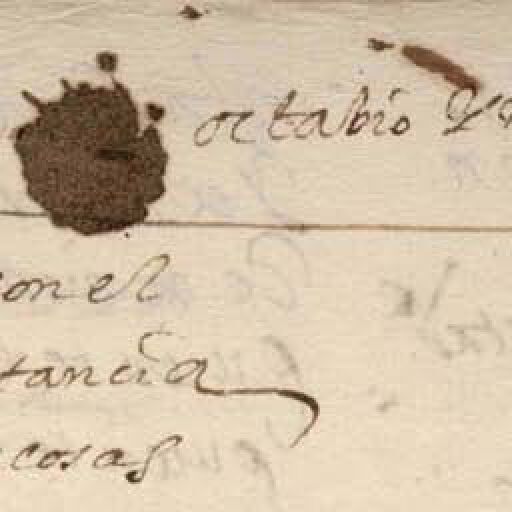 octabio
con el
tancia
cosas